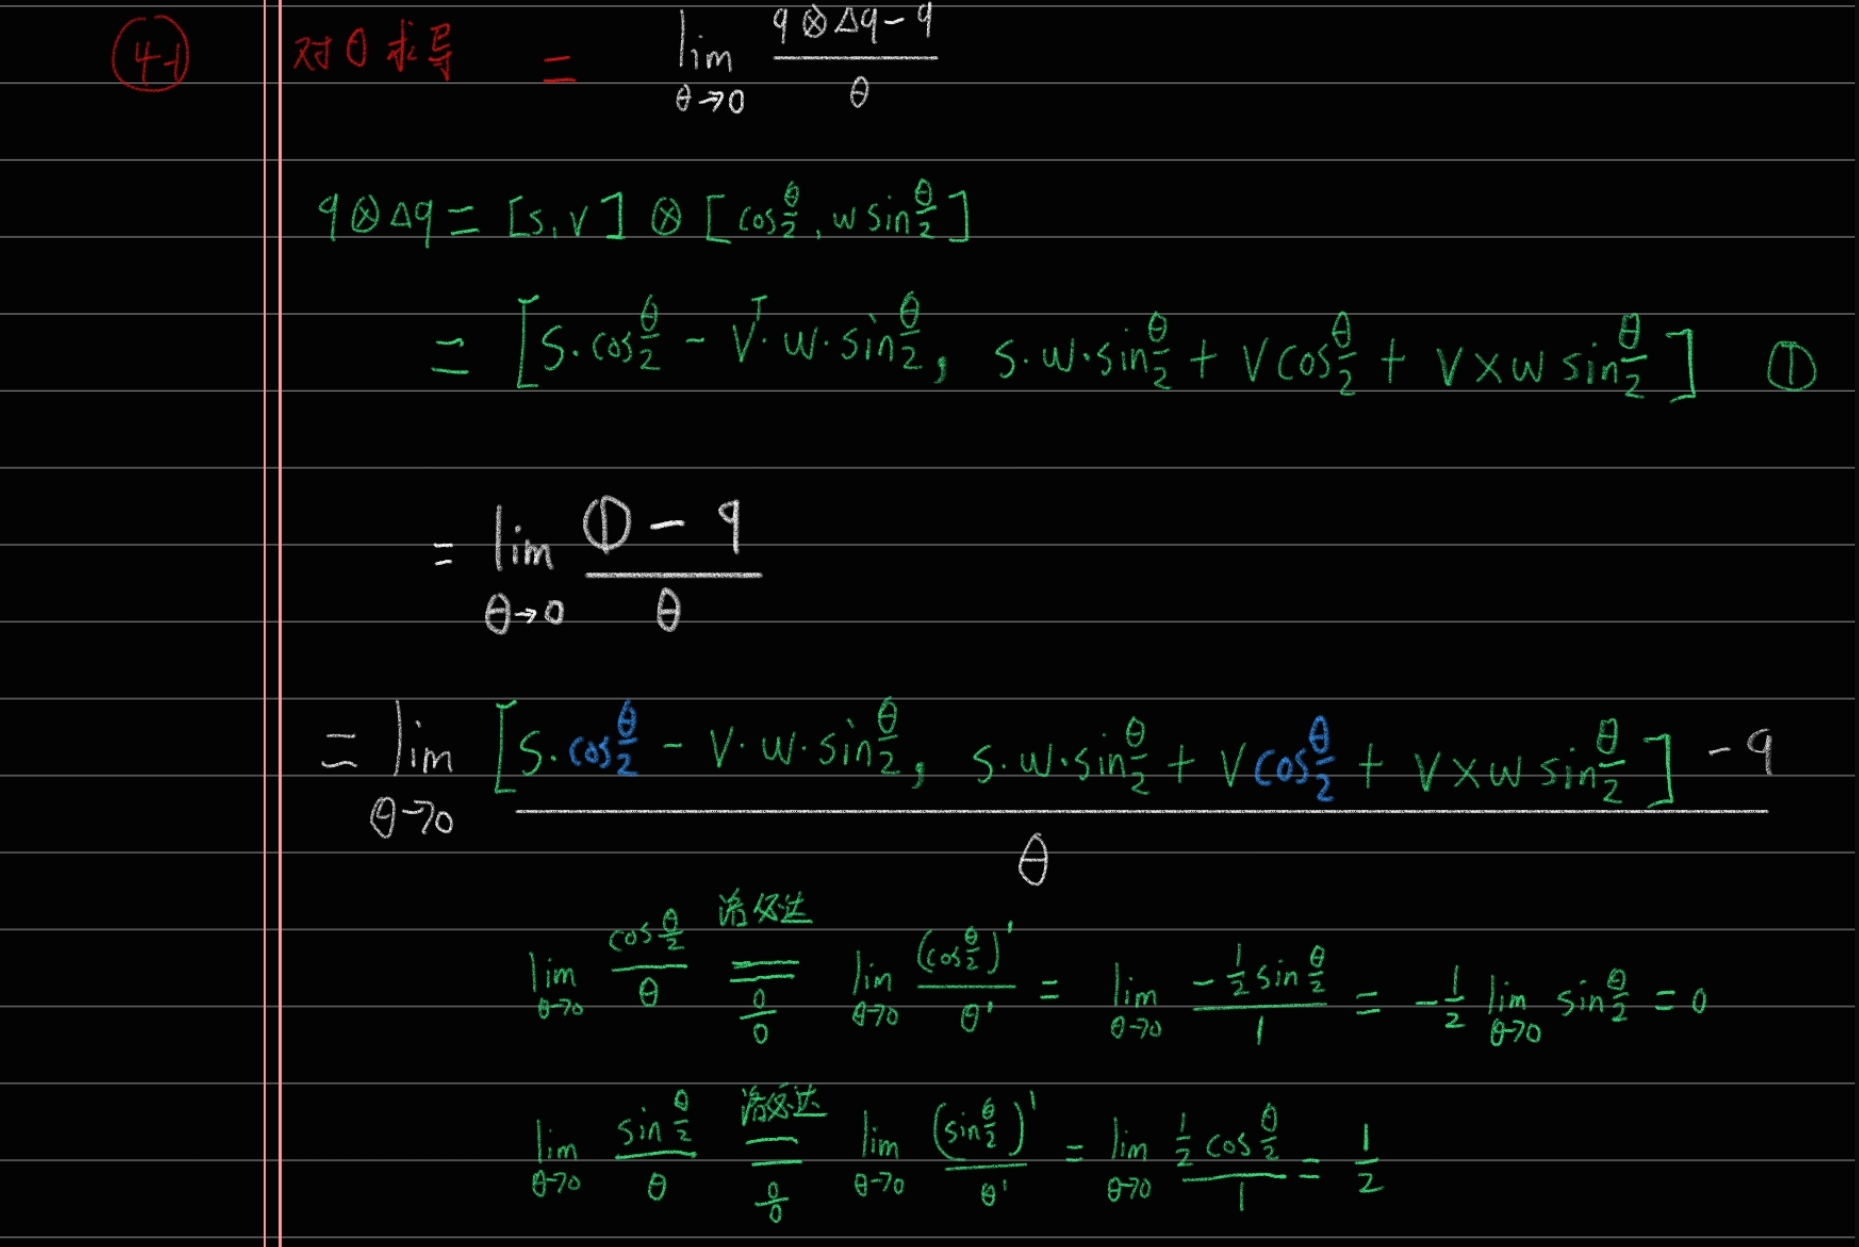 4-1 对θ求导 = lim θ→0 (q⊗Δq - q)/θ
q⊗Δq = [s, v] ⊗ [cos θ/2, w sin θ/2]
= [s·cos θ/2 - vᵀ·w·sin θ/2, s·w·sin θ/2 + v cos θ/2 + v×w sin θ/2] ①
= lim θ→0 (① - q)/θ
= lim θ→0 ([s·cos θ/2 - v·w·sin θ/2, s·w·sin θ/2 + v cos θ/2 + v×w sin θ/2] - q)/θ
lim θ→0 (cos θ/2)/θ 洛必达 = 0/0 lim θ→0 (cos θ/2)'/θ' = lim θ→0 (-1/2 sin θ/2)/1 = -1/2 lim θ→0 sin θ/2 = 0
lim θ→0 (sin θ/2)/θ 洛必达 = 0/0 lim θ→0 (sin θ/2)'/θ' = lim θ→0 (1/2 cos θ/2)/1 = 1/2